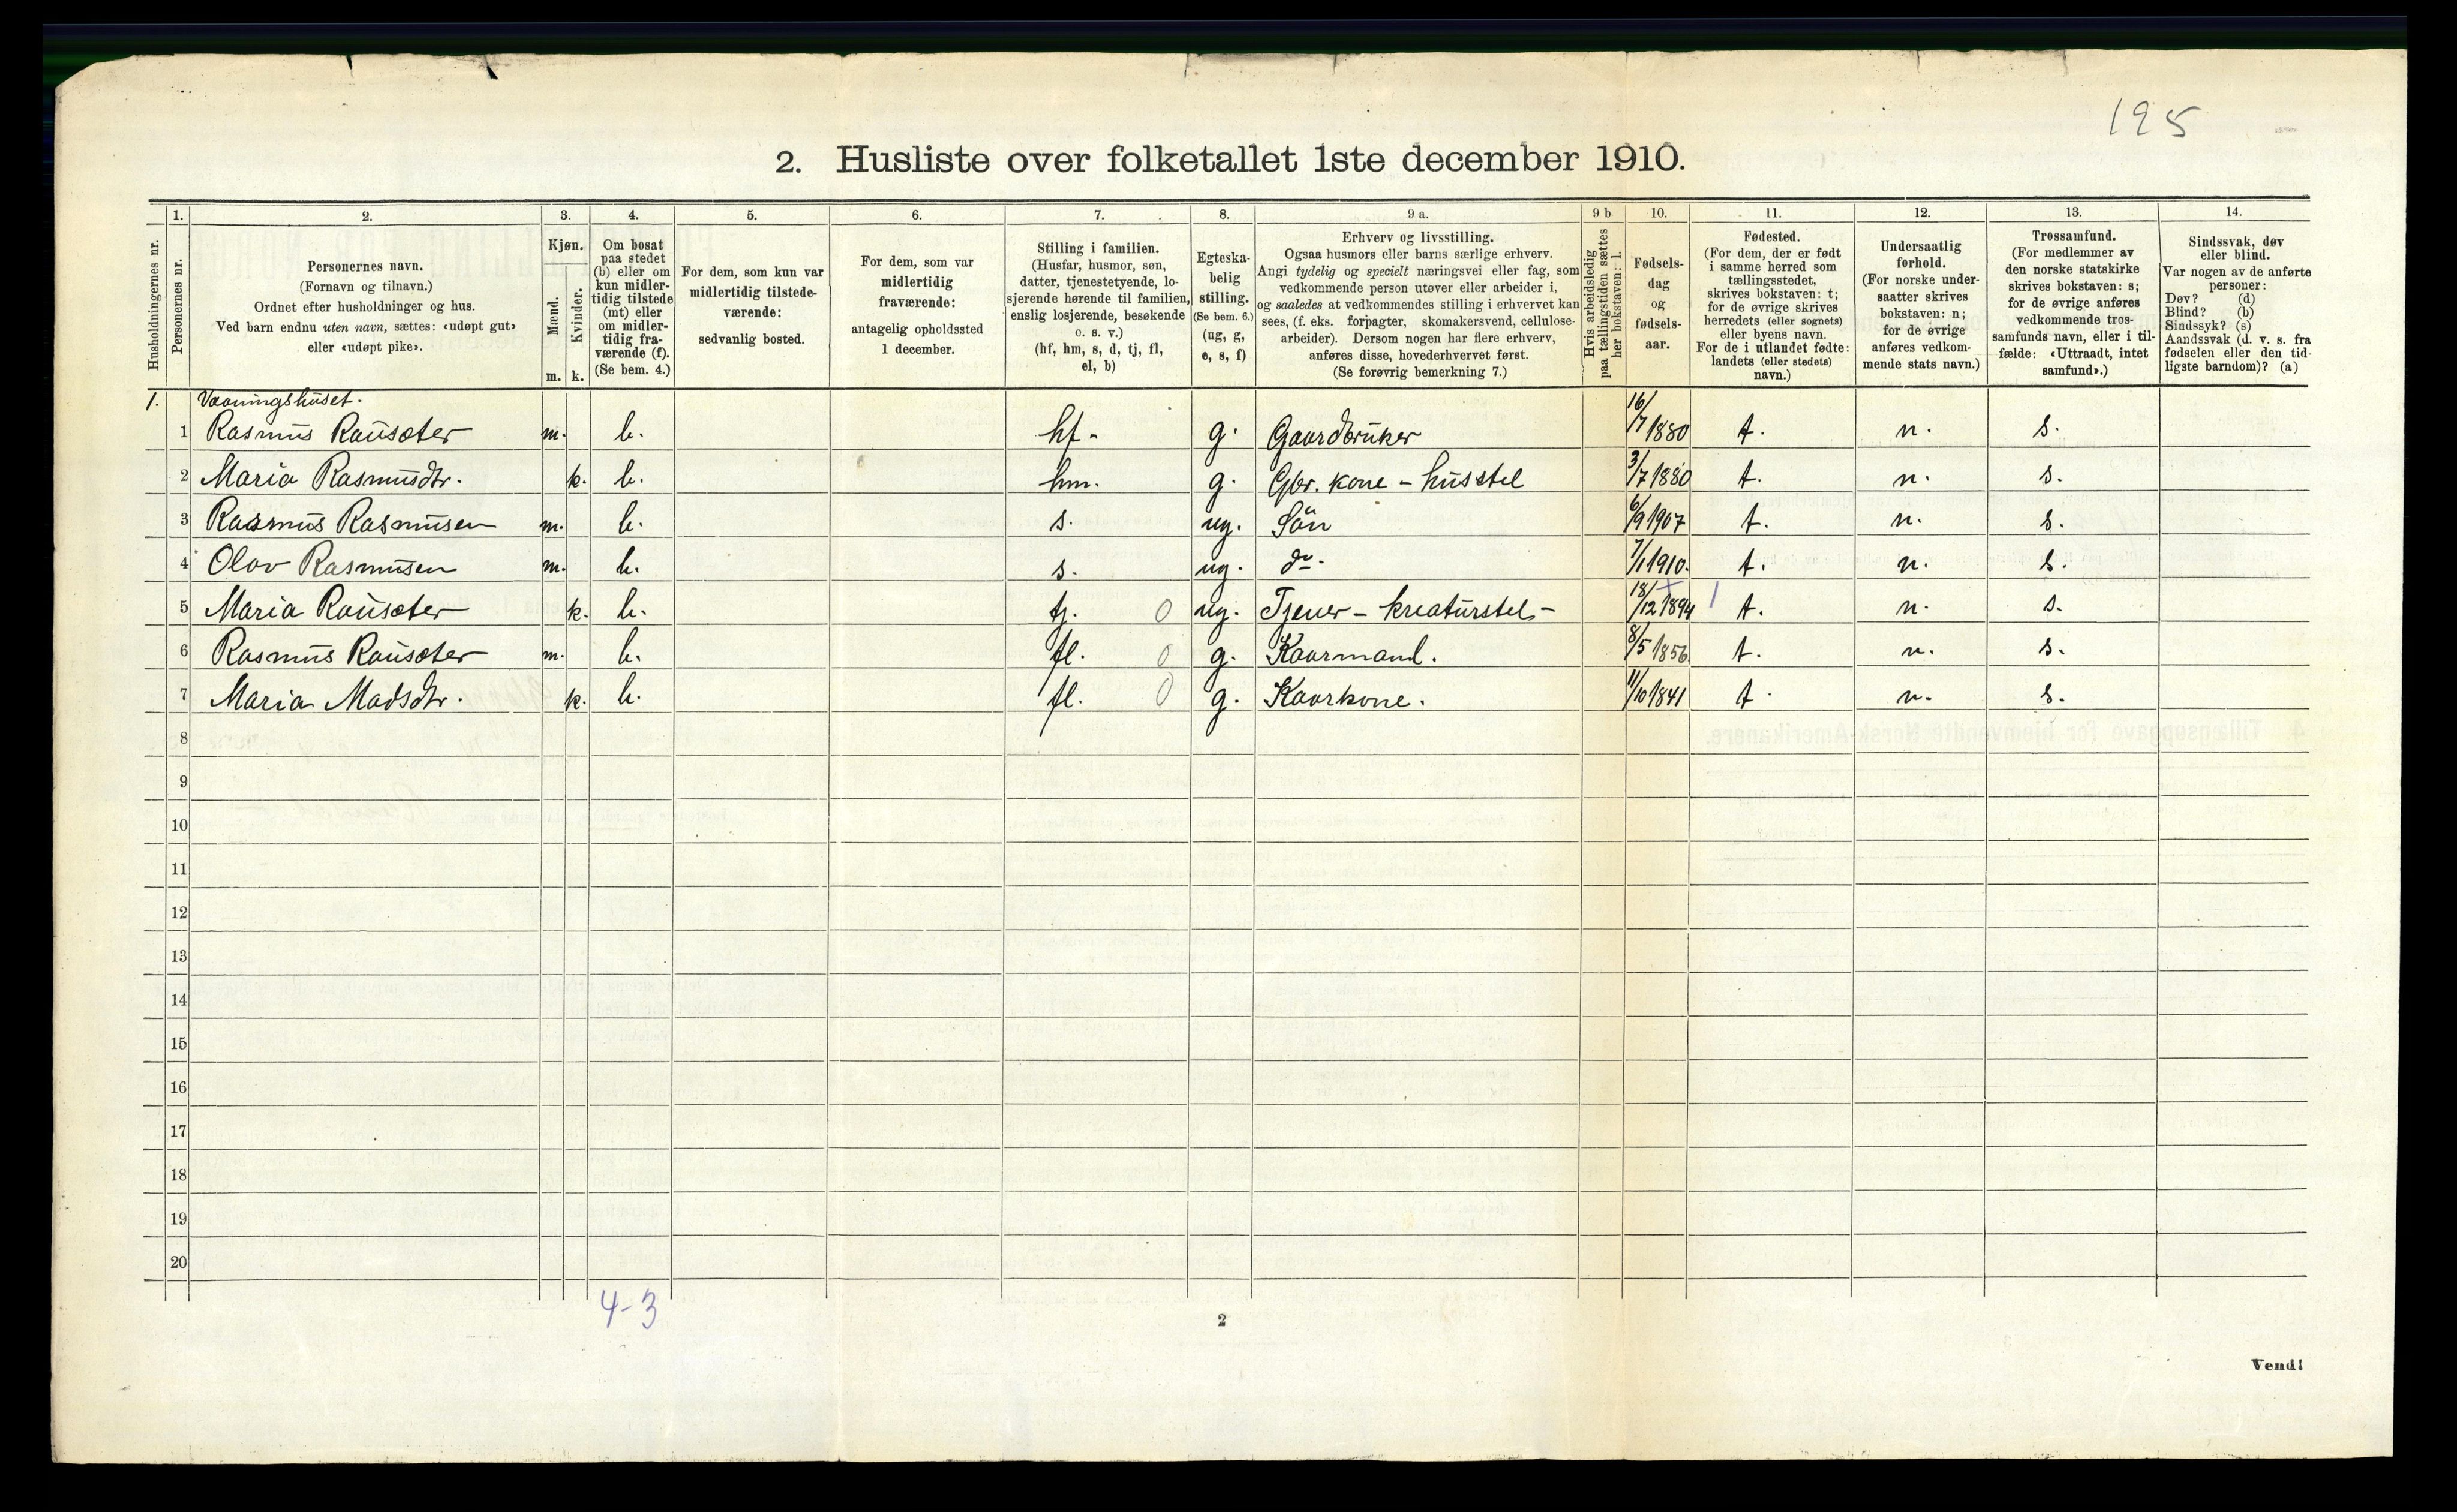 195
2. Husliste over folketallet 1ste december 1910.
Husholdningernes nr.
1.
Personernes nr.
2.
Personernes navn.
(Fornavn og tilnavn.)
Ordnet efter husholdninger og hus.
Ved barn endnu uten navn, sættes: «udøpt gut»
eller «udøpt pike».
3.
Kjøn.
Mænd.
Kvinder.
m. k.
4.
Om bosat
paa stedet
(b) eller om
kun midler-
tidig tilstede
(mt) eller
om midler-
tidig fra-
værende (f).
(Se bem. 4.)
5.
For dem, som kun var
midlertidig tilstede-
værende:
sedvanlig bosted.
6.
For dem, som var
midlertidig
fraværende:
antagelig opholdssted
1 december.
7.
Stilling i familien.
(Husfar, husmor, søn,
datter, tjenestetyende, lo-
sjerende hørende til familien,
enslig losjerende, besøkende
o. s. v.)
(hf, hm, s, d, tj, fl,
el, b)
8.
Egteska-
belig
stilling.
(Se bem. 6.)
(ug, g,
e, s, f)
9 a.
Erhverv og livsstilling.
Ogsaa husmors eller barns særlige erhverv.
Angi tydelig og specielt næringsvei eller fag, som
vedkommende person utøver eller arbeider i,
og saaledes at vedkommendes stilling i erhvervet kan
sees, (f. eks. forpagter, skomakersvend, cellulose-
arbeider). Dersom nogen har flere erhverv,
anføres disse, hovederhvervet først.
(Se forøvrig bemerkning 7.)
9 b
Hvis arbeidsledig
paa tællingstiden sættes
her bokstaven: l.
10.
Fødsels-
dag
og
fødsels-
aar.
11.
Fødested.
(For dem, der er født
i samme herred som
tællingsstedet,
skrives bokstaven: t;
for de øvrige skrives
herredets (eller sognets)
eller byens navn.
For de i utlandet fødte:
landets (eller stedets)
navn.)
12.
Undersaatlig
forhold.
(For norske under-
saatter skrives
bokstaven: n;
for de øvrige
anføres vedkom-
mende stats navn.)
13.
Trossamfund.
(For medlemmer av
den norske statskirke
skrives bokstaven: s;
for de øvrige anføres
vedkommende tros-
samfunds navn, eller i til-
fælde: «Uttraadt, intet
samfund».)
14.
Sindssvak, døv
eller blind.
Var nogen av de anførte
personer:
Døv? (d)
Blind? (b)
Sindssyk? (s)
Aandssvak (d. v. s. fra
fødselen eller den tid-
ligste barndom)? (a)
1. Vaaningshuset.
1 Rasmus Rausæter m. b. hf. g. Gaardbruker 16/7 1880 t. n. s.
2 Maria Rasmusdtr. k. b. hm. g. Gbr. kone - husstel 3/7 1880 t. n. s.
3 Rasmus Rasmusen m. b. s. ug. Sön 6/9 1907 t. n. s.
4 Olav Rasmusen m. b. s. ug. do. 7/1 1910. t. n. s.
5 Maria Rausæter k. b. tj. 0 ug. Tjener - kreaturstel - 18/12 1894 t. n. s.
6 Rasmus Rausæter m. b. fl. 0 g. Kaarmand. 8/5 1856 t. n. s.
7 Maria Madsdtr. k. b. fl. 0 g. Kaarkone. 11/10 1841 t. n. s.
8
9
10
11
12
13
14
15
16
17
18
19
20
4-3
2
Vend!